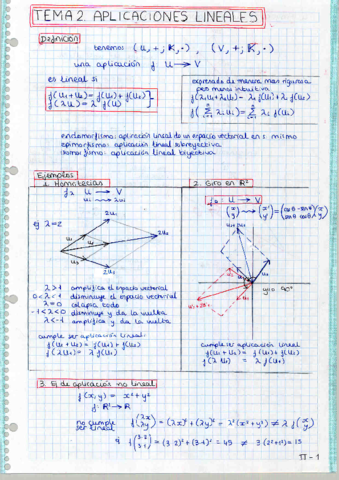 TEMA 2. APLICACIONES LINEALES
Definición
tenemos (U, +; K, ·) , (V, +; K, ·)
una aplicación f U → V
es lineal si
f(u₁+u₂) = f(u₁) + f(u₂)
f(λu) = λ f(u)
expresado de manera mas rigurosa
pero menos intuitiva
f(λ₁u₁+λ₂u₂) = λ₁ f(u₁) + λ₂ f(u₂)
endomorfismo: aplicación lineal de un espacio vectorial en si mismo
epimorfismo: aplicación lineal sobreyectiva
isomorfismo: aplicación lineal biyectiva
Ejemplos
1. Homotecias
f λ U → V
u₁ ⇝ λu₁
ej λ=2
2u₁
u₁
2u₂
u₂
λ>1 amplifica el espacio vectorial
0<λ<1 disminuye el espacio vectorial
λ=0 colapsa todo
-1<λ<0 disminuye y da la vuelta
λ<-1 amplifica y da la vuelta
cumple ser aplicación lineal:
f(u₁+u₂) = f(u₁) + f(u₂)
f(λu₁) = λ f(u₁)
2. Giro en R²
U → V
90°
cumple ser aplicación lineal
f(u₁+u₂) = f(u₁) + f(u₂)
f(λ u₁) = λ f(u₁)
3. Ej de aplicación no lineal
f(x,y) = x²+y²
f: R² → R
no cumple
ser lineal
f(λx λy) = (λx)² + (λy)² = λ²(x²+y²) ≠ λ f(x y)
π - 1